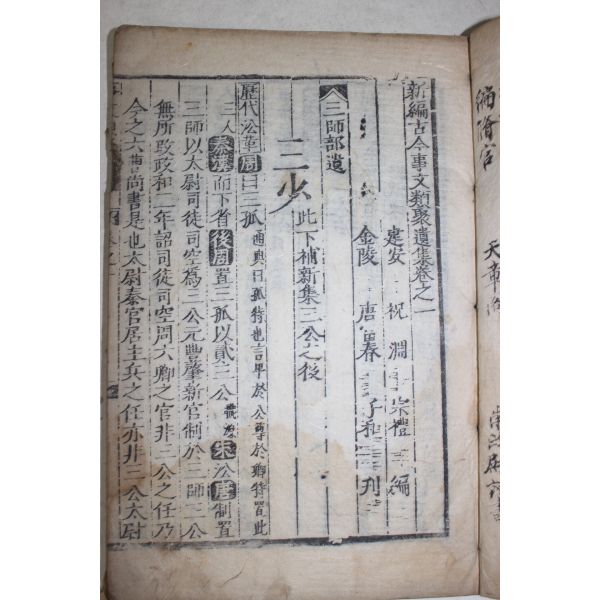 新編古今事文類聚遺集卷之一
建安 祝 淵 宗禮 編
金陵 唐富春 子和 刊
三師部遺
三少 此下補新集三公之後
歷代沿革 周曰三孤 通典曰孤特也言卑於公尊於卿特置此
三人 秦漢而下省 後周置三孤以貳三公 宋沿唐制置
三師以太尉司徒司空爲三公元豐肇新官制於三師三公
無所改政和二年詔司徒司空周六卿之官非三公之任乃
今之六曹尚書是也太尉秦官居主兵之任亦非三公太尉
編修官
天章